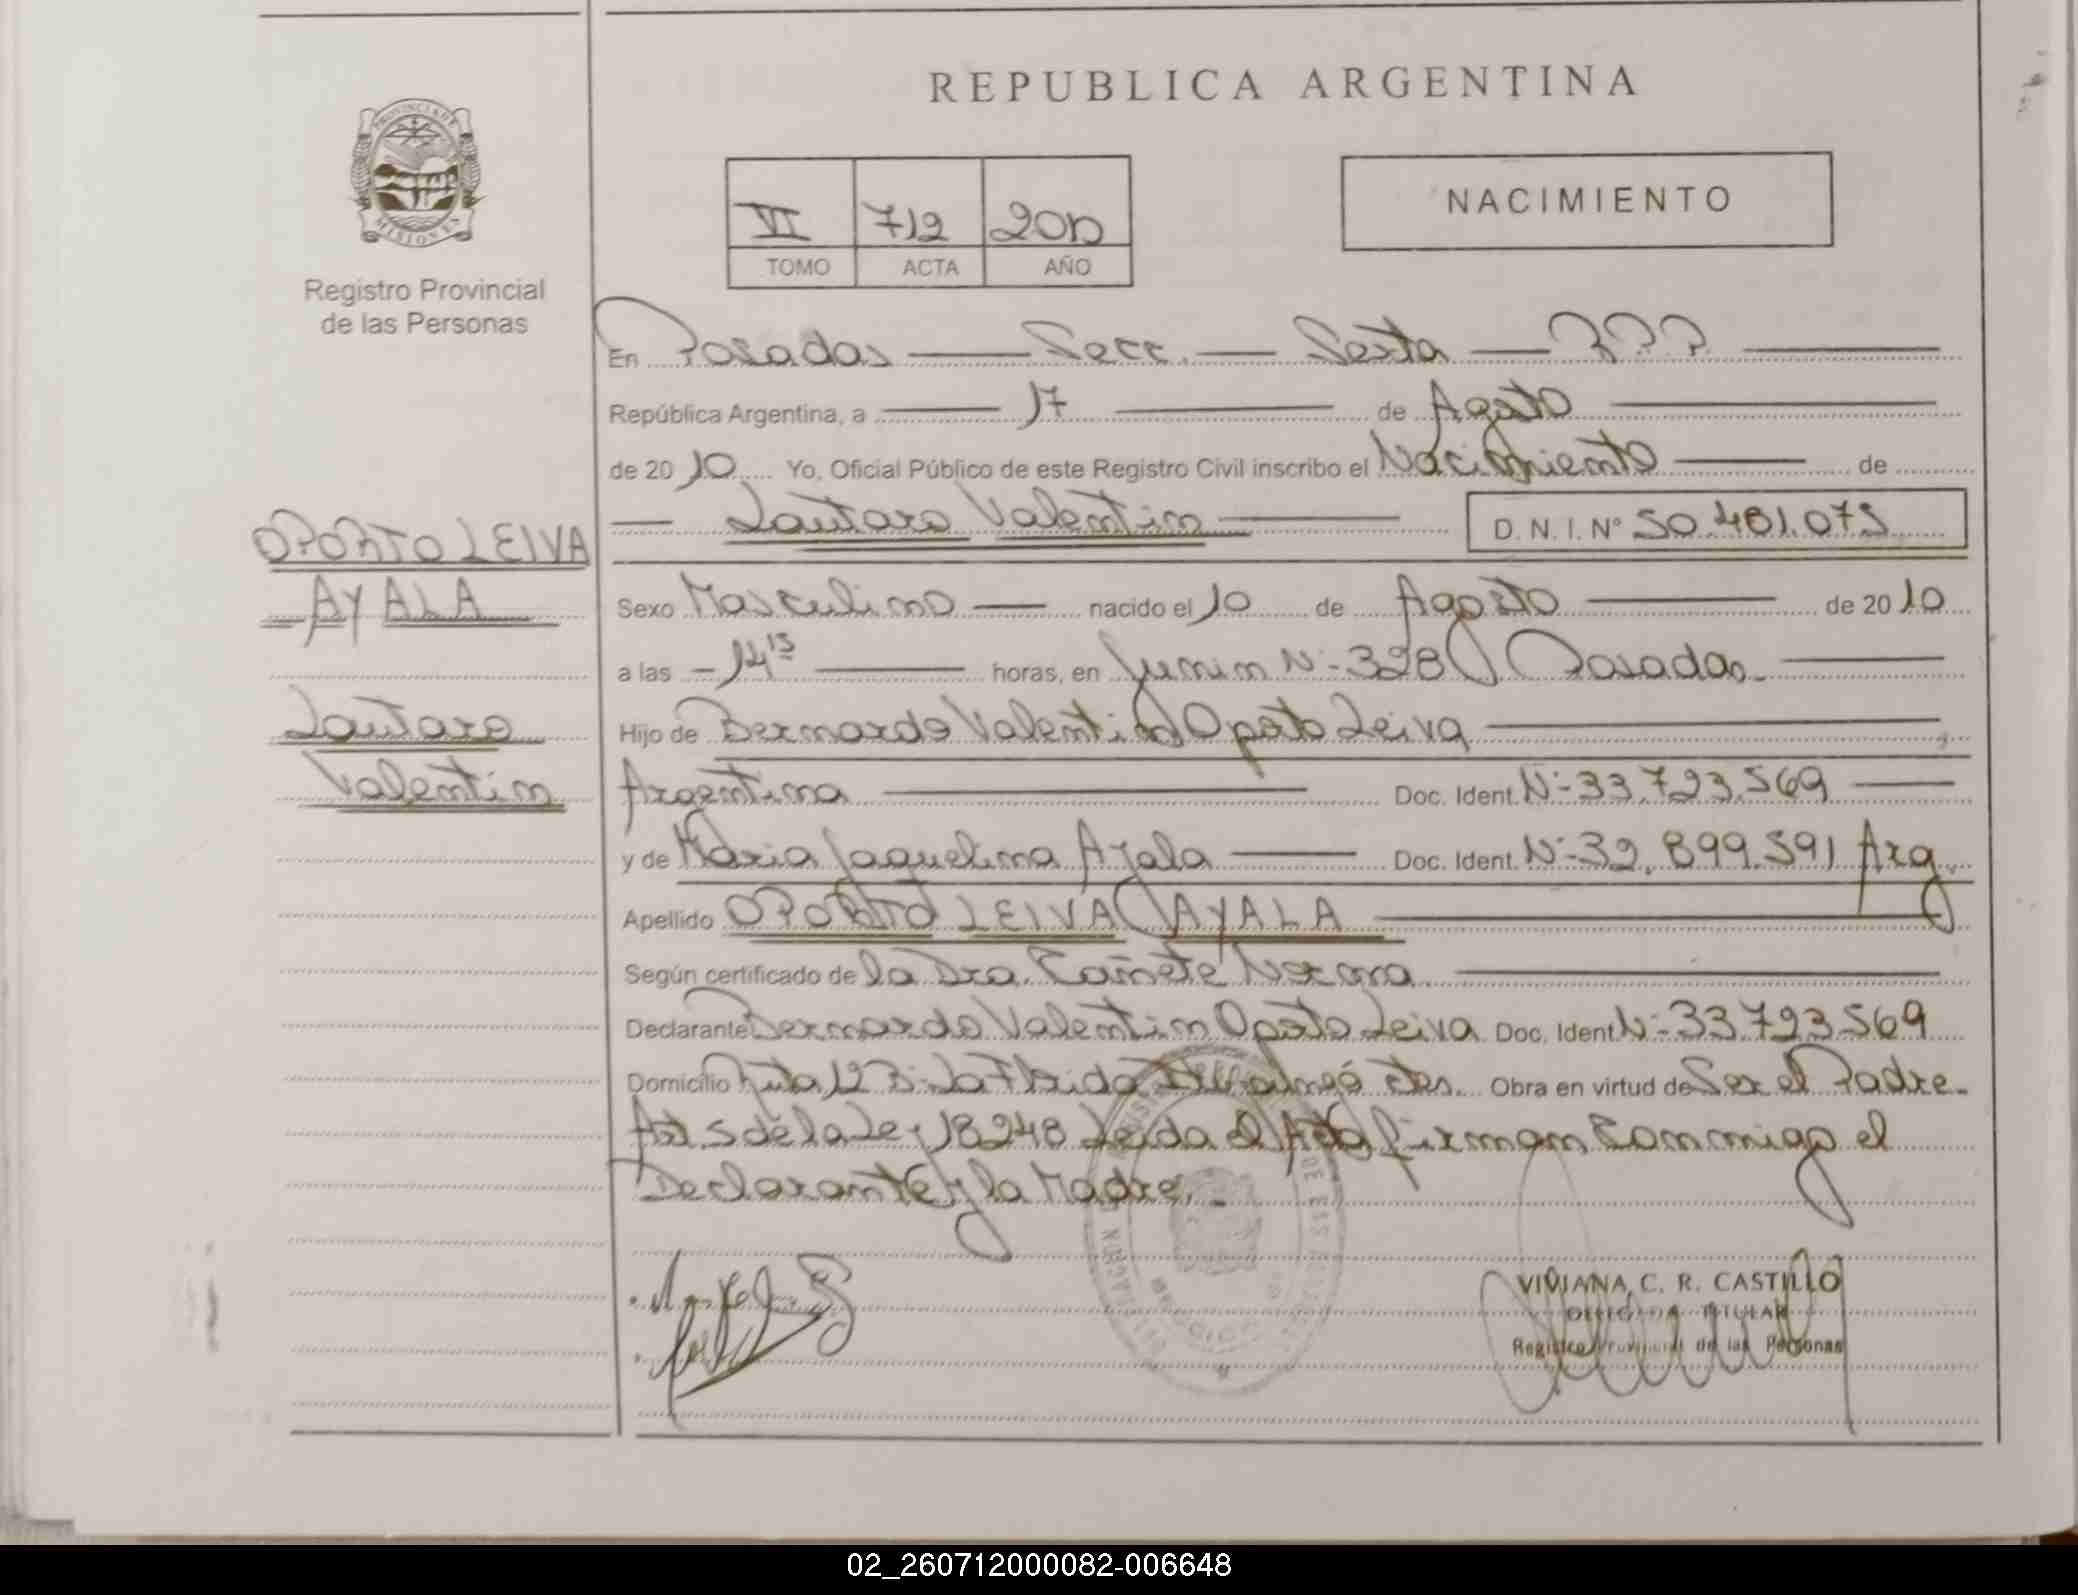 REPUBLICA ARGENTINA
PROVINCIA DE MISIONES
Registro Provincial
de las Personas
VI 712 2010
TOMO ACTA AÑO
NACIMIENTO
En Posadas — Secc. — Sexta — R.P.P.
República Argentina, a 17 de Agosto
de 2010 Yo, Oficial Público de este Registro Civil inscribo el Nacimiento de
Lautaro Valentin D. N. I. Nº 50.481.075
OPORTO LEIVA
AYALA
Lautaro
Valentin
Sexo Masculino nacido el 10 de Agosto de 2010
a las 14 15 horas, en Junin Nº 328 Posadas.
Hijo de Bernardo Valentin Oporto Leiva
Argentina Doc. Ident. Nº 33.723.569
y de Maria Jaquelina Ayala Doc. Ident. Nº 32.899.591 Arg.
Apellido OPORTO LEIVA AYALA
Según certificado de la Dra. Cañete Norma
Declarante Bernardo Valentin Oporto Leiva Doc. Ident. Nº 33723569
Domicilio Ruta 12 Bº La Florida Obra en virtud de Ser el Padre.
Art. 5 de la Ley 18248 Leida el Acta firman Conmigo el
Declarante y la Madre.
VIVIANA C. R. CASTILLO
TITULAR
Registro Provincial de las Personas
02_260712000082-006648